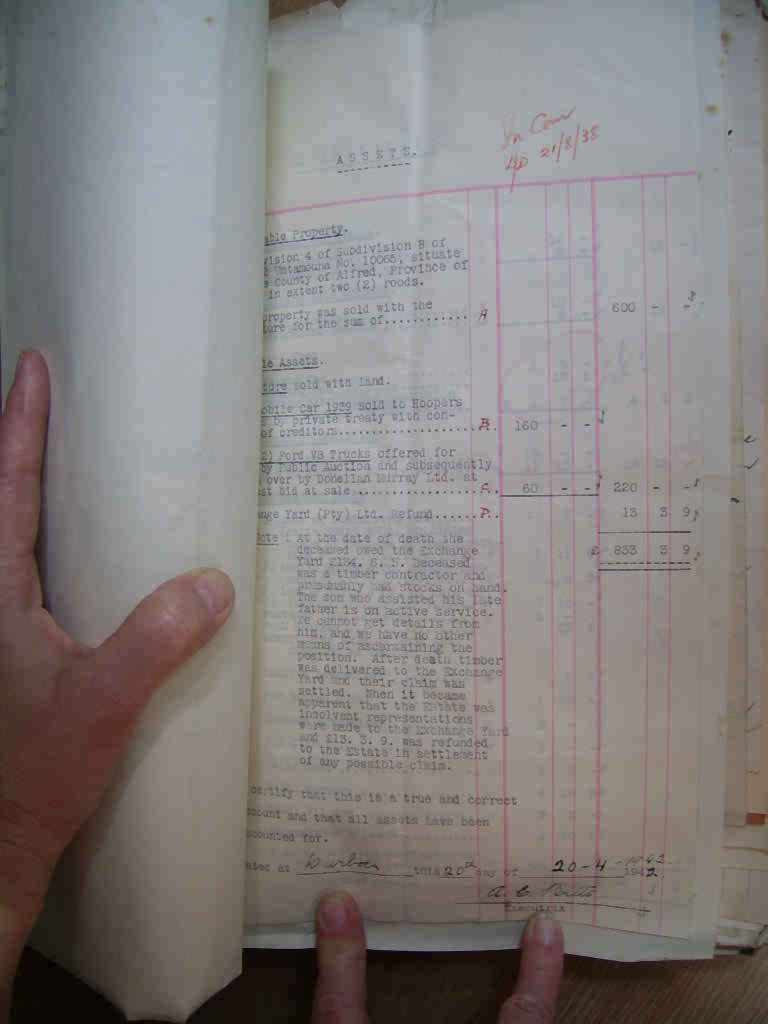 In Com
21/8/38
A S S E T S.
able Property.
vision 4 of Subdivision B of
Umtamouna No. 10065, situate
County of Alfred, Province of
in extent two (2) roods.
property was sold with the
ture for the sum of............ A 600 - -
le Assets.
ture sold with land.
obile Car 1939 sold to Hoopers
by private treaty with con-
of creditors.................... B. 160 - -
2) Ford V8 Trucks offered for
by Public Auction and subsequently
over by Donellan Murray Ltd. at
st bid at sale.................. C. 60 - - 220 - -
ange Yard (Pty) Ltd. Refund...... D. 13 3 9
ote : At the date of death the
deceased owed the Exchange
Yard £184. 6. 5. Deceased
was a timber contractor and
presumably had stocks on hand.
The son who assisted his late
father is on active service.
We cannot get details from
him, and we have no other
means of ascertaining the
position. After death timber
was delivered to the Exchange
Yard and their claim was
settled. When it became
apparent that the Estate was
insolvent representations
were made to the Exchange Yard
and £13. 3. 9. was refunded
to the Estate in settlement
of any possible claim.
£ 833 3 9
certify that this is a true and correct
count and that all assets have been
counted for.
ated at Durban this 20th day of 20-4-1942 1942.
Executrix